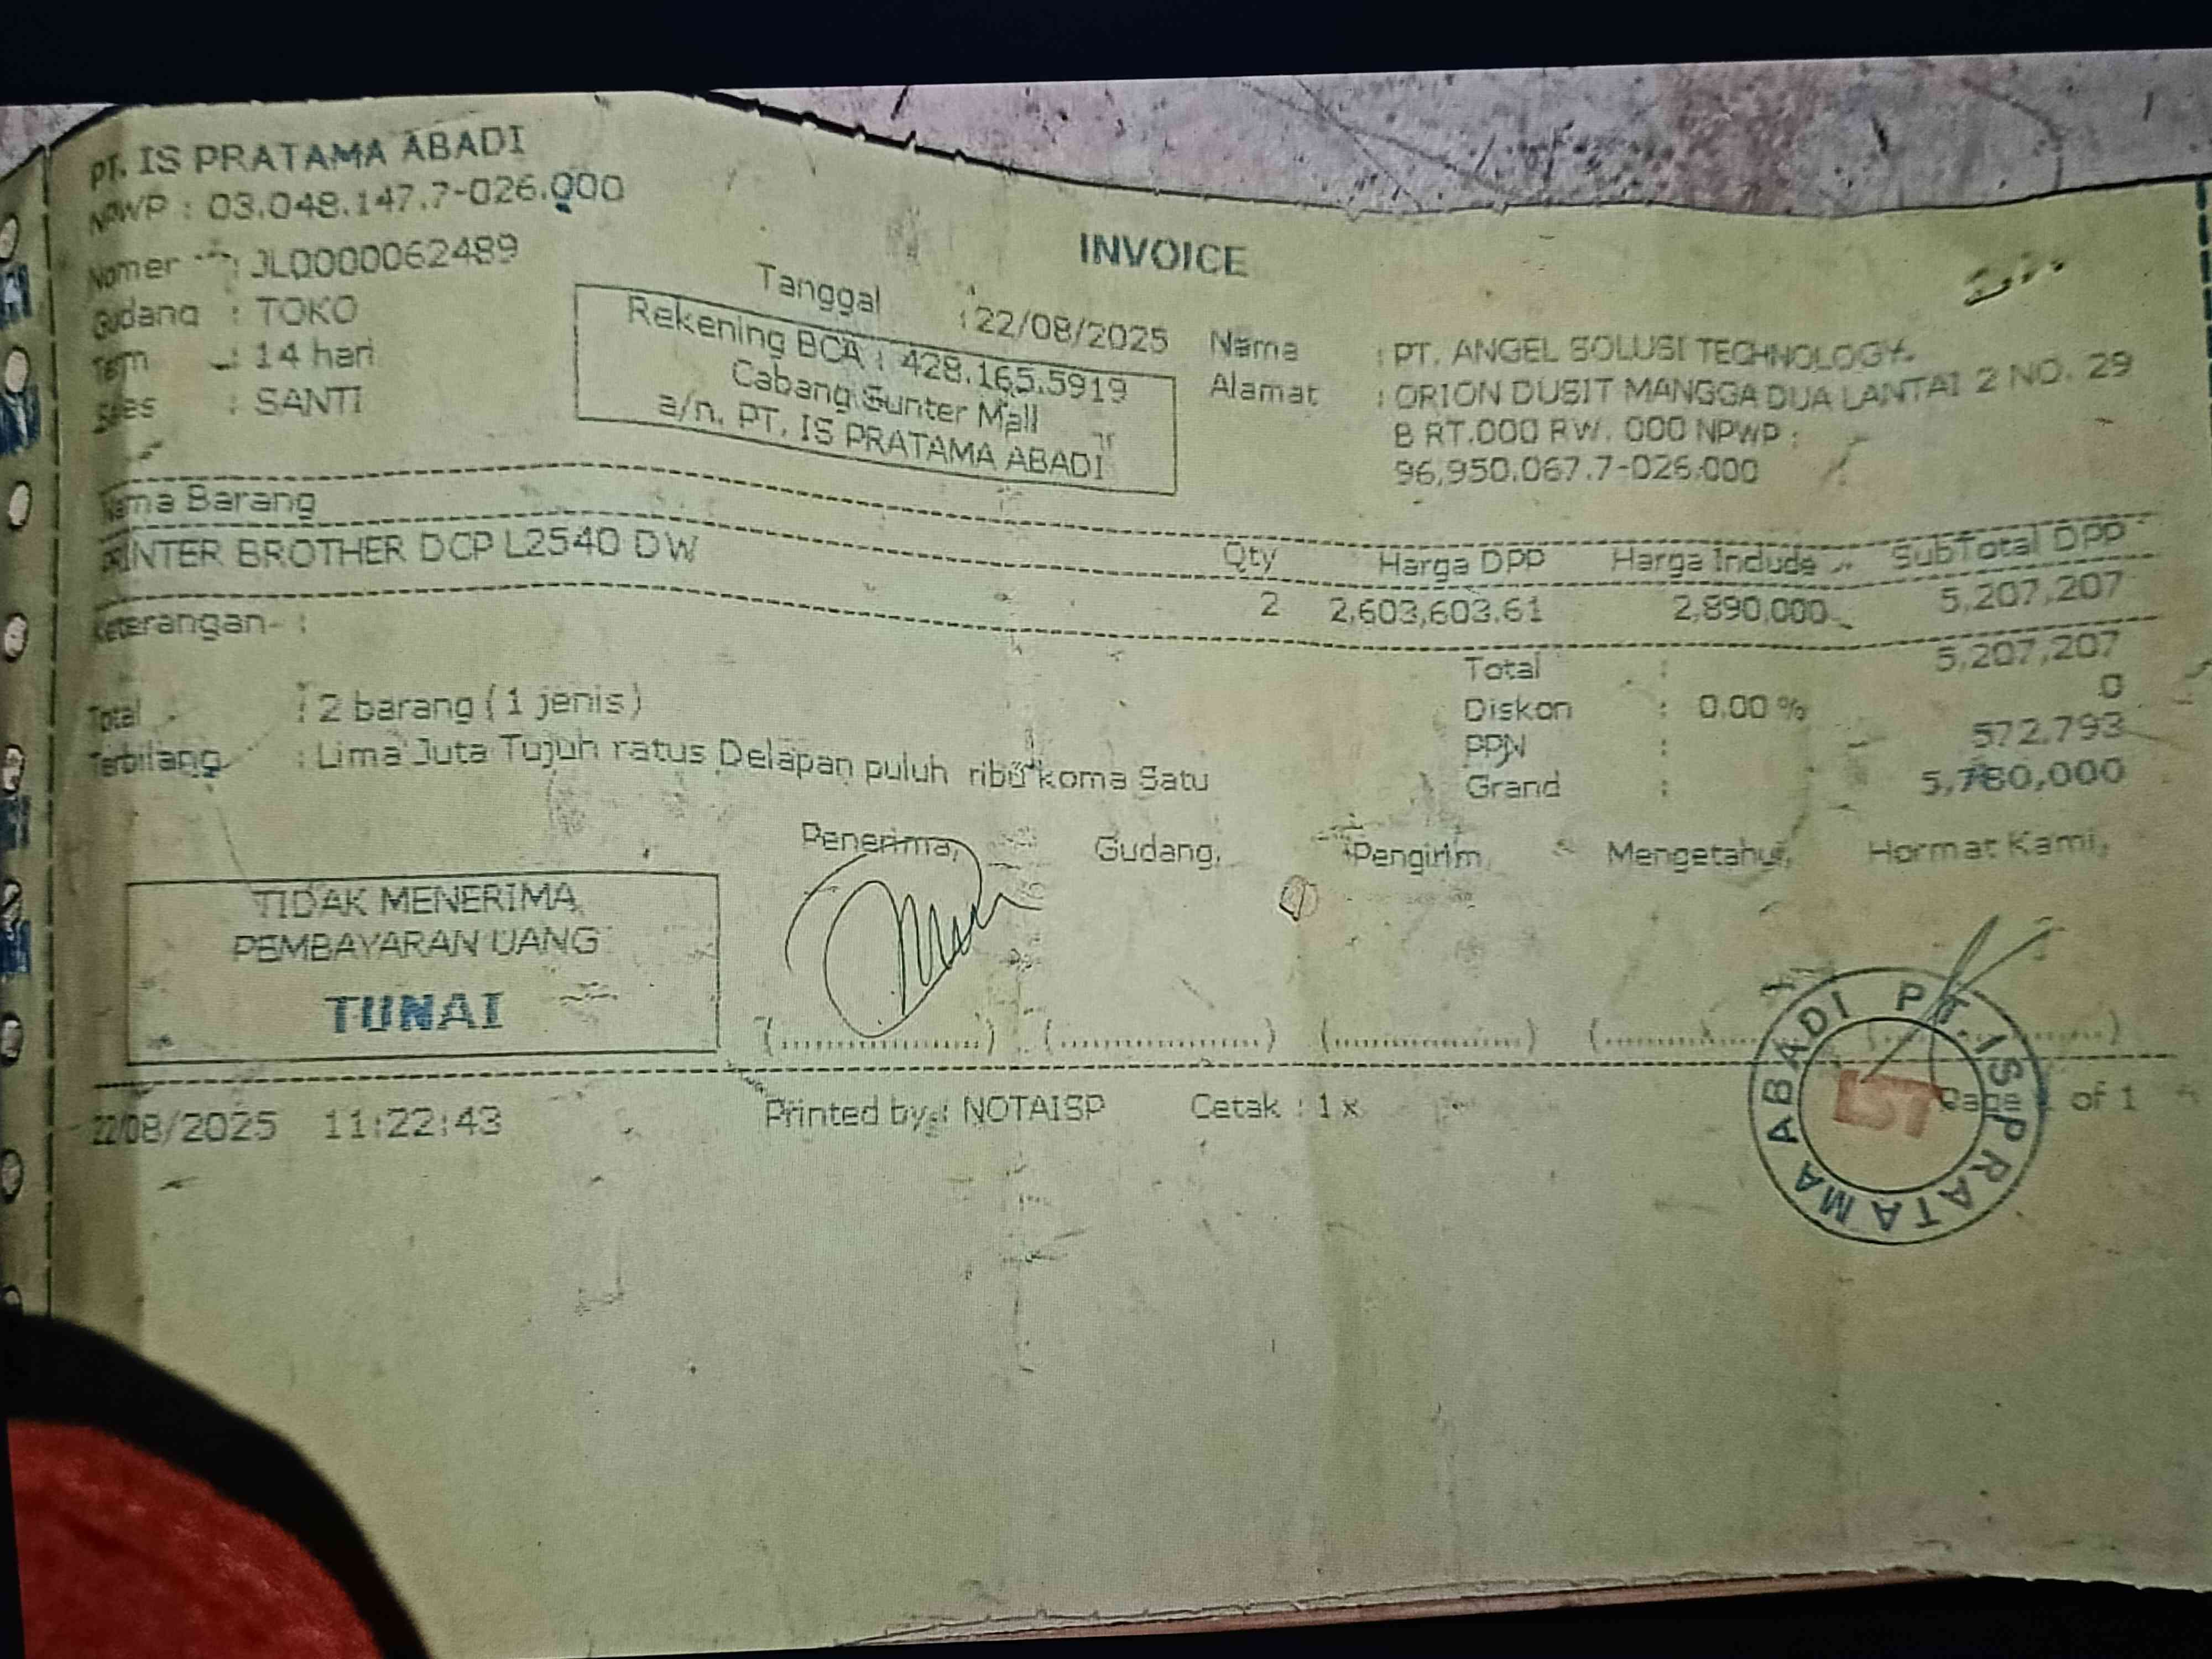 PT. IS PRATAMA ABADI
NPWP : 03.048.147.7-026.000
INVOICE
Nomer : JL0000062489
Gudang : TOKO
Term : 14 hari
Sales : SANTI
Tanggal : 22/08/2025
Rekening BCA : 428.165.5919
Cabang Sunter Mall
a/n. PT. IS PRATAMA ABADI
Nama : PT. ANGEL SOLUSI TECHNOLOGY.
Alamat : ORION DUSIT MANGGA DUA LANTAI 2 NO. 29
B RT.000 RW. 000 NPWP :
96,950.067.7-026.000
Nama Barang Qty Harga DPP Harga Include SubTotal DPP
PRINTER BROTHER DCP L2540 DW 2 2,603,603.61 2,890,000 5,207,207
Keterangan :
Total : 5,207,207
Diskon : 0.00 % 0
PPN : 572,793
Grand : 5,780,000
Total : 2 barang ( 1 jenis )
Terbilang : Lima Juta Tujuh ratus Delapan puluh ribu koma Satu
Penerima, Gudang, Pengirim, Mengetahui, Hormat Kami,
TIDAK MENERIMA
PEMBAYARAN UANG
TUNAI
(....................) (....................) (....................) (....................) (....................)
PT. IS PRATAMA ABADI
IST
22/08/2025 11:22:43 Printed by : NOTAISP Cetak : 1 x Page of 1